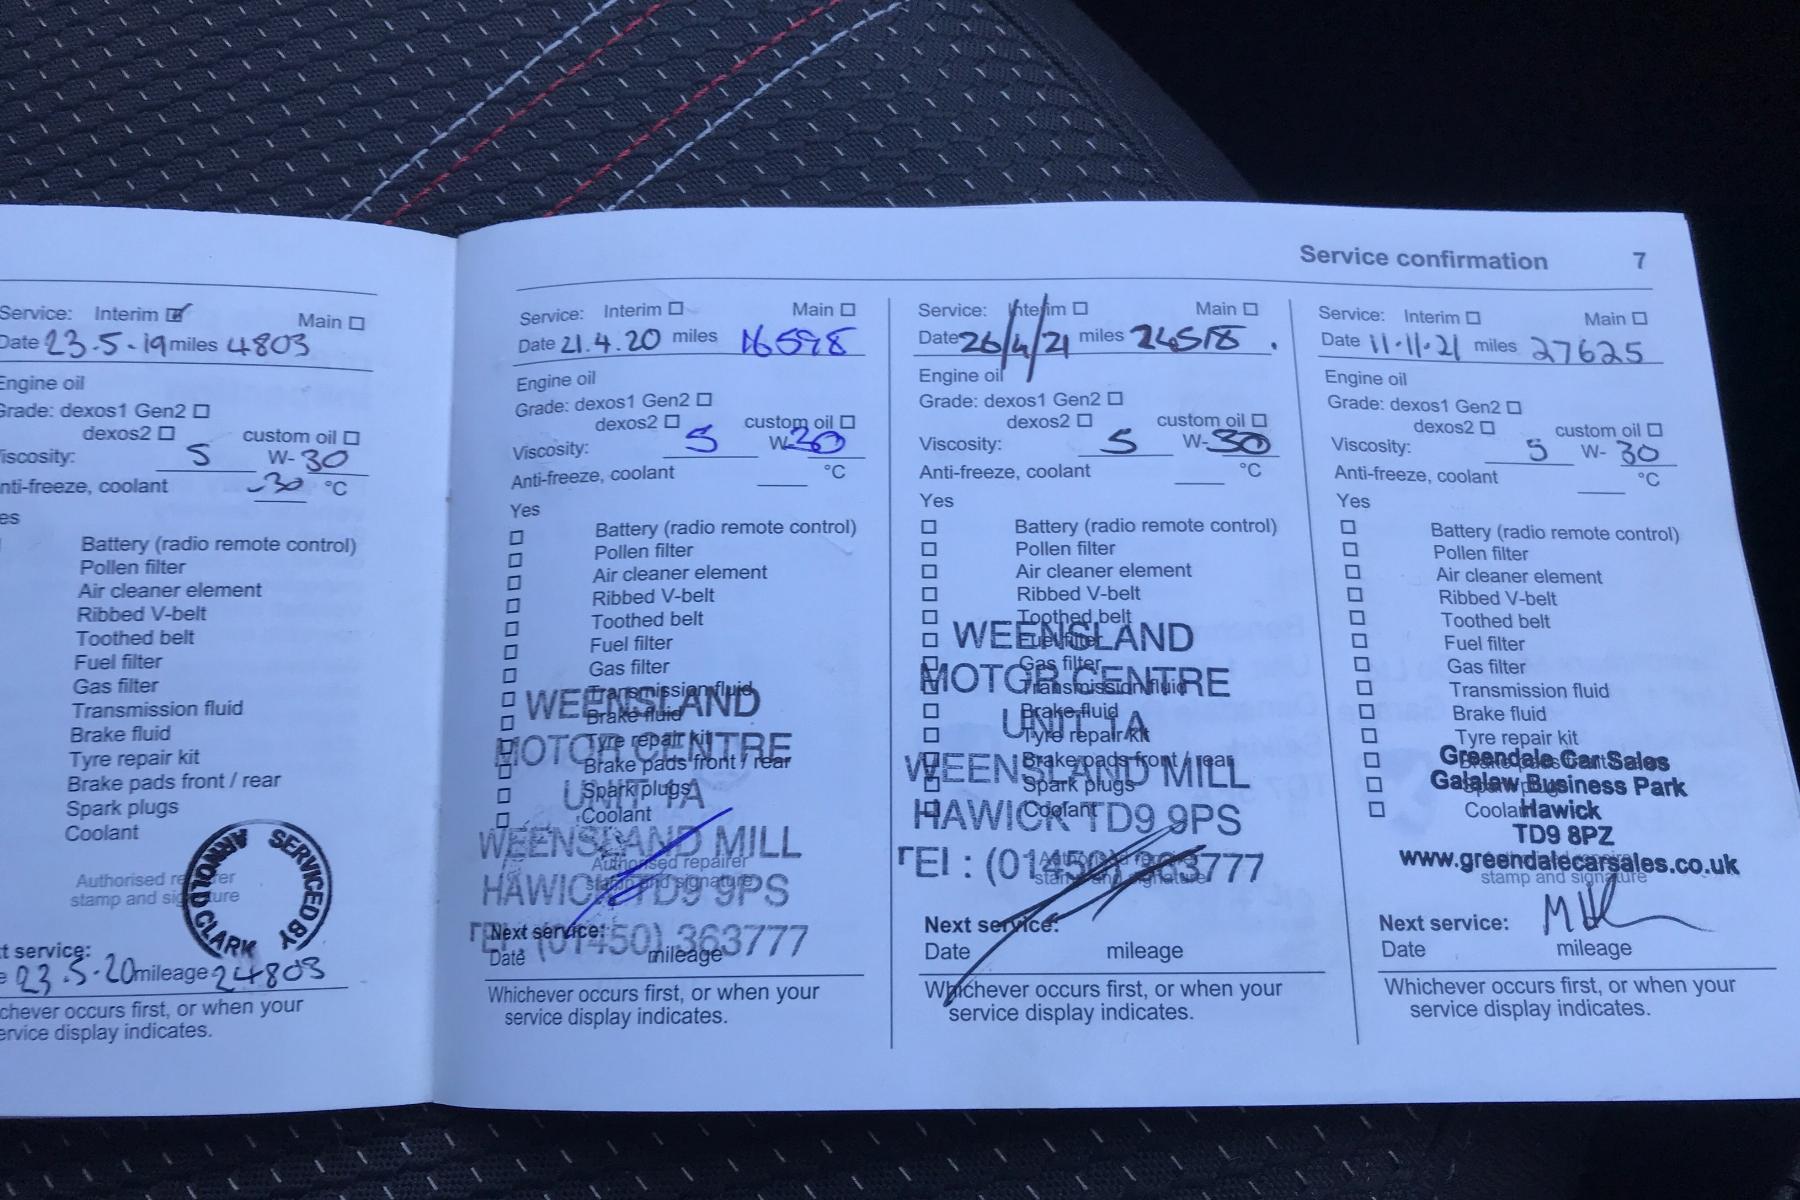 Service confirmation 7
Service: Interim Main
Date 23.5.19 miles 4803
Engine oil
Grade: dexos1 Gen2
dexos2 custom oil
Viscosity: 5 W-30
Anti-freeze, coolant -30 °C
Yes
Battery (radio remote control)
Pollen filter
Air cleaner element
Ribbed V-belt
Toothed belt
Fuel filter
Gas filter
Transmission fluid
Brake fluid
Tyre repair kit
Brake pads front / rear
Spark plugs
Coolant
SERVICED BY
ARNOLD CLARK
Authorised repairer
stamp and signature
Next service:
Date 23.5.20 mileage 24803
Whichever occurs first, or when your
service display indicates.
Service: Interim Main
Date 21.4.20 miles 16598
Engine oil
Grade: dexos1 Gen2
dexos2 custom oil
Viscosity: 5 W-30
Anti-freeze, coolant °C
Yes
Battery (radio remote control)
Pollen filter
Air cleaner element
Ribbed V-belt
Toothed belt
Fuel filter
Gas filter
Transmission fluid
Brake fluid
Tyre repair kit
Brake pads front / rear
Spark plugs
Coolant
WEENSLAND
MOTOR CENTRE
UNIT 1A
WEENSLAND MILL
HAWICK TD9 9PS
TEl : (01450) 363777
Authorised repairer
stamp and signature
Next service:
Date mileage
Whichever occurs first, or when your
service display indicates.
Service: Interim Main
Date 26/4/21 miles 24518.
Engine oil
Grade: dexos1 Gen2
dexos2 custom oil
Viscosity: 5 W-30
Anti-freeze, coolant °C
Yes
Battery (radio remote control)
Pollen filter
Air cleaner element
Ribbed V-belt
Toothed belt
Fuel filter
Gas filter
Transmission fluid
Brake fluid
Tyre repair kit
Brake pads front / rear
Spark plugs
Coolant
WEENSLAND
MOTOR CENTRE
UNIT 1A
WEENSLAND MILL
HAWICK TD9 9PS
TEl : (01450) 363777
Authorised repairer
stamp and signature
Next service:
Date mileage
Whichever occurs first, or when your
service display indicates.
Service: Interim Main
Date 11.11.21 miles 27625
Engine oil
Grade: dexos1 Gen2
dexos2 custom oil
Viscosity: 5 W-30
Anti-freeze, coolant °C
Yes
Battery (radio remote control)
Pollen filter
Air cleaner element
Ribbed V-belt
Toothed belt
Fuel filter
Gas filter
Transmission fluid
Brake fluid
Tyre repair kit
Coolant
Greendale Car Sales
Galalaw Business Park
Hawick
TD9 8PZ
www.greendalecarsales.co.uk
stamp and signature
Next service:
Date mileage
Whichever occurs first, or when your
service display indicates.